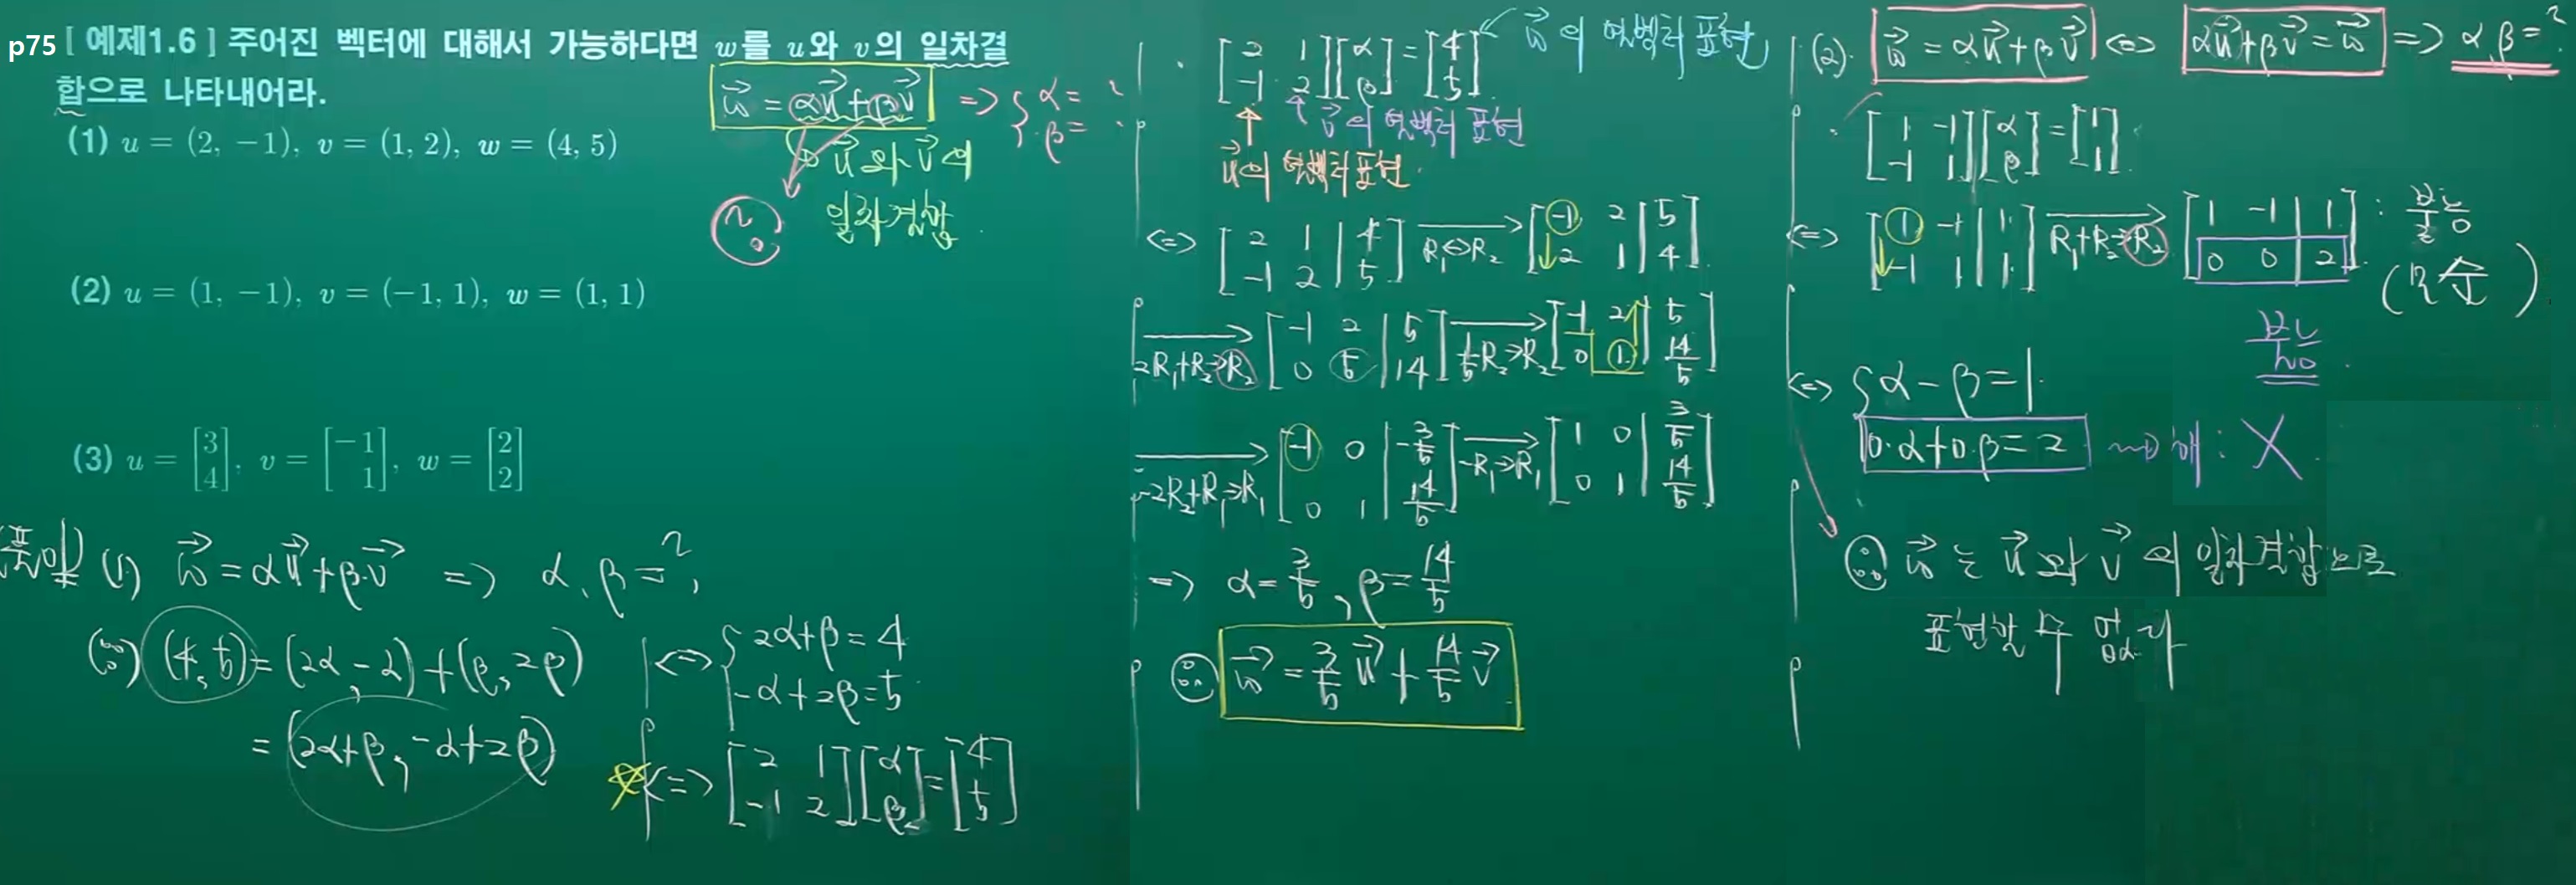 p75 [ 예제1.6 ] 주어진 벡터에 대해서 가능하다면 w를 u와 v의 일차결
합으로 나타내어라.
w⃗ = αu⃗+βv⃗ => { α= ?
β= ?
u⃗와 v⃗의
일차결합
?
(1) u = (2, −1), v = (1, 2), w = (4, 5)
(2) u = (1, −1), v = (−1, 1), w = (1, 1)
(3) u = [3 4], v = [−1 1], w = [2 2]
(풀이) (1) w⃗ = αu⃗+β·v⃗ => α, β = ?
(∵) (4, 5) = (2α, -α) + (β, 2β)
= (2α+β, -α+2β)
<=> { 2α+β = 4
-α+2β=5
☆ <=> [2 1; -1 2][α; β] = [4; 5]
[2 1; -1 2][α; β] = [4; 5] w⃗의 열벡터 표현
v⃗의 열벡터 표현
u⃗의 열벡터 표현
<=> [2 1 | 4; -1 2 | 5] R₁<=>R₂ [-1 2 | 5; 2 1 | 4]
2R₁+R₂→R₂ [-1 2 | 5; 0 5 | 14] 1/5R₂→R₂ [-1 2 | 5; 0 1 | 14/5]
-2R₂+R₁→R₁ [-1 0 | -3/5; 0 1 | 14/5] -R₁→R₁ [1 0 | 3/5; 0 1 | 14/5]
=> α= 3/5, β= 14/5
∴ w⃗ = 3/5 u⃗ + 14/5 v⃗
(2). w⃗ = αu⃗+βv⃗ <=> αu⃗+βv⃗ = w⃗ => α, β = ?
[1 -1; -1 1][α; β] = [1; 1]
<=> [1 -1 | 1; -1 1 | 1] R₁+R₂→R₂ [1 -1 | 1; 0 0 | 2] : 불능
(모순)
불능
<=> { α - β = 1
0·α+0·β = 2 해 : X
∴ w⃗는 u⃗와 v⃗의 일차결합으로
표현할 수 없다